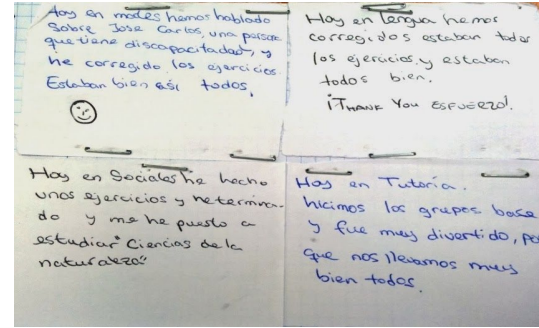 Hoy en mates hemos hablado
sobre Jose Carlos, una persona
que tiene discapacitadad, y
he corregido los ejercicios
Estaban bien asi todos.
Hoy en lengua hemos
corregidos estaban todos
los ejercicios, y estaban
todos bien.
¡THANK YOU ESFUERZO!.
Hoy en Sociales he hecho
unos ejercicios y he termina-
do y me he puesto a
estudiar "Ciencias de la
naturaleza"
Hoy en Tutoria.
hicimos los grupos base
y fue muy divertido, por
que nos llevamos muy
bien todos.